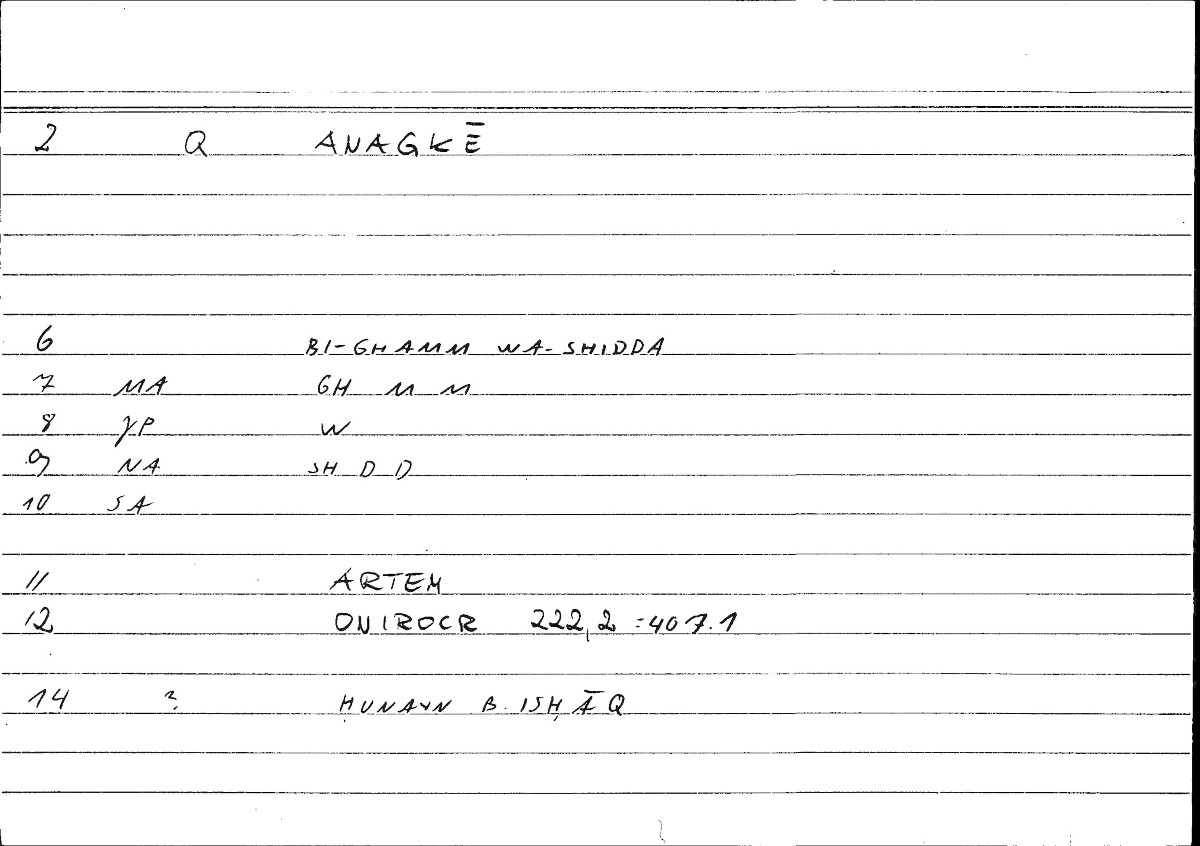 2 Q ANAGKĒ
6 BI-GHAMM WA-SHIDDA
7 MA GH M M
8 γP W
9 NA SH D D
10 SA
11 ARTEM
12 ONIROCR 222,2 =407.1
14 ? ḤUNAYN B. ISḤĀQ